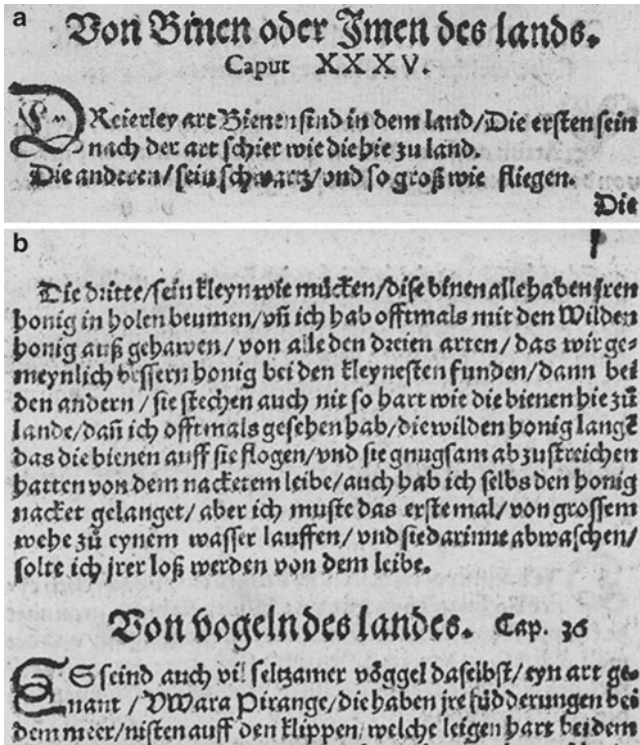 a
Von Binen oder Jmen des lands.
Caput XXXV.
DReierley art Bienen sind in dem land/Die ersten sein
nach der art schier wie die hie zu land.
Die anderen/sein schwartz/vnd so groß wie fliegen.
Die
b
Die dritte/sein kleyn wie mücken/dise binen alle haben jren
honig in holen beumen/vñ ich hab offtmals mit den Wilden
honig auß gehawen/von alle den dreien arten/das wir ge-
meynlich bessern honig bei den kleynesten funden/dann bei
den andern/sie stechen auch nit so hart wie die bienen hie zů
lande/dañ ich offtmals gesehen hab/die wilden honig langẽ
das die bienen auff sie flogen/vnd sie gnugsam abzustreichen
hatten von dem nacketem leibe/auch hab ich selbs den honig
nacket gelanget/aber ich muste das erste mal/von grossem
wehe zů eynem wasser lauffen/vnd sie darinne abwaschen/
solte ich jrer loß werden von dem leibe.
Von vogeln des landes. Cap. 36
ES seind auch vil seltzamer vöggel daselbst/eyn art ge-
nant/VWara Pirange/die haben jre füdderungen bei
dem meer/nisten auff den klippen/welche leigen hart bei dem